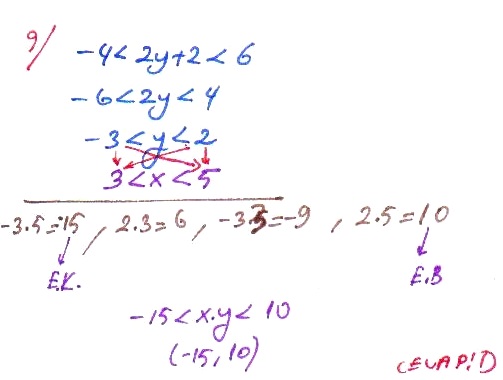 9/
-4 < 2y+2 < 6
-6 < 2y < 4
-3 < y < 2
3 < x < 5
-3.5=-15, 2.3=6, -3.3=-9, 2.5=10
E.K. E.B
-15 < x.y < 10
(-15, 10)
CEVAP: D